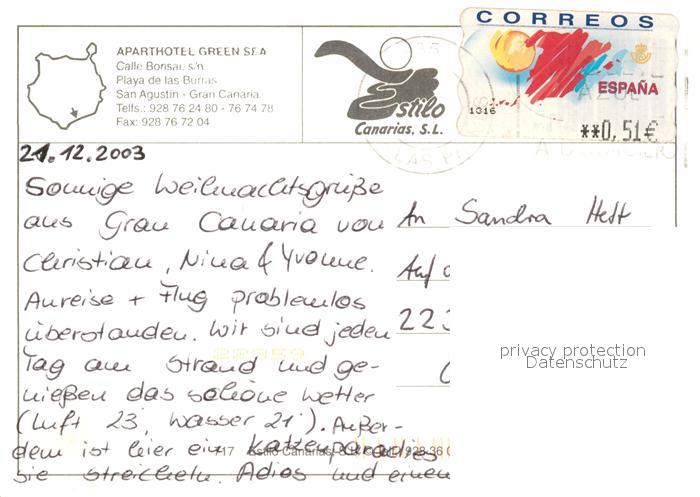 CORREOS
ESPAÑA
1316
**0,51€
APARTHOTEL GREEN SEA
Calle Bonsai, s/n.
Playa de las Burras
San Agustín - Gran Canaria
Telfs.: 928 76 24 80 - 76 74 78
Fax: 928 76 72 04
Estilo
Canarias, S.L.
21.12.2003
Sonnige Weihnachtsgrüße
aus Gran Canaria von
Christian, Nina & Yvonne.
Anreise + Flug problemlos
überstanden. Wir sind jeden
Tag am Strand und ge-
nießen das schöne Wetter
(Luft 23, Wasser 21°). Außer-
dem ist hier ein Katzenparadies
sie streicheln. Adios und einen
An Sandra Hett
Auf
223
privacy protection
Datenschutz
22359
17 Estilo Canarias, S.L. 928 36 0